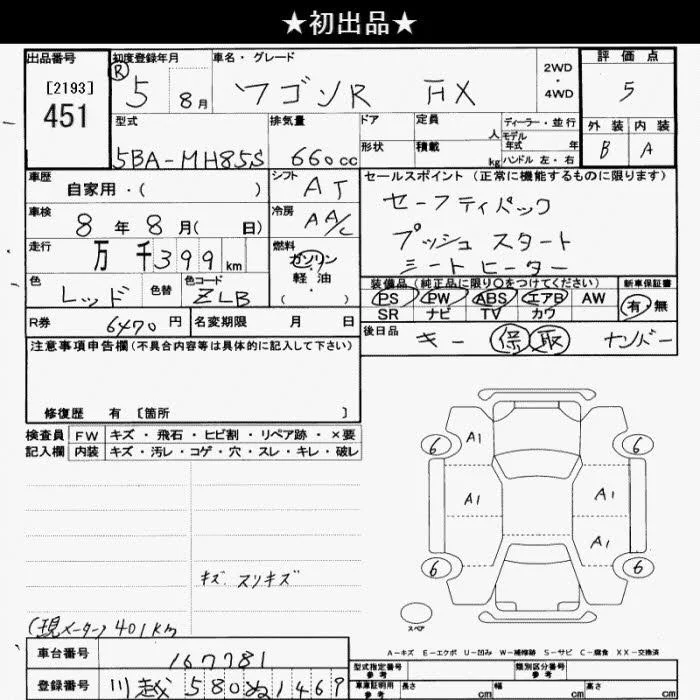 ★初出品★
出品番号
[2193]
451
初度登録年月
Ⓡ 5 8月
車名・グレード
ワゴンR FX
2WD
・
4WD
評価点
5
外装 内装
B A
型式
5BA-MH85S
排気量
660cc
ドア
定員
人
形状
積載
kg
ディーラー・並行
モデル年式 年
ハンドル 左・右
車歴
自家用・( )
シフト
AT
車検
8年8月( 日)
冷房
AA/C
走行
万千399km
燃料
ガソリン
・
軽油
( )
色
レッド
色替
色コード
ZLB
セールスポイント(正常に機能するものに限ります)
セーフティパック
プッシュスタート
シートヒーター
装備品(純正品に限り○をつけてください)
PS PW ABS エアB AW
SR ナビ TV カワ
新車保証書
有・無
R券
6470円
名変期限 月 日
後日品
キー 保 取 ナンバー
注意事項申告欄(不具合内容等は具体的に記入して下さい)
修復歴 有 [箇所 ]
検査員記入欄
FW キズ・飛石・ヒビ割・リペア跡・×要
内装 キズ・汚レ・コゲ・穴・スレ・キレ・破レ
キズ.スリキズ
(現メーター)401km
6 A1 6
A1 A1
A1
6 6
スペア
A-キズ E-エクボ U-凹み W-補修跡 S-サビ C-腐食 XX-交換済
車台番号
167781
登録番号
川越580ぬ1469
型式指定番号
参考
類別区分番号
参考
車庫証明用
参考
長さ cm
幅 cm
高さ cm